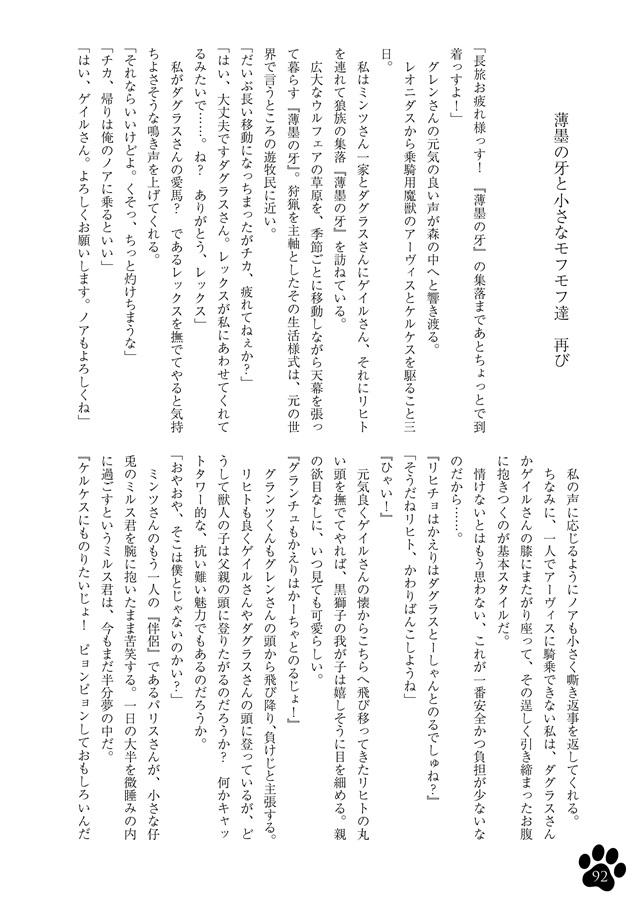 薄墨の牙と小さなモフモフ達　再び
「長旅お疲れ様っす！　『薄墨の牙』の集落まであとちょっとで到
着っすよ！」
グレンさんの元気の良い声が森の中へと響き渡る。
レオニダスから乗騎用魔獣のアーヴィスとケルケスを駆ること三
日。
私はミンツさん一家とダグラスさんにゲイルさん、それにリヒト
を連れて狼族の集落『薄墨の牙』を訪ねている。
広大なウルフェアの草原を、季節ごとに移動しながら天幕を張っ
て暮らす『薄墨の牙』。狩猟を主軸としたその生活様式は、元の世
界で言うところの遊牧民に近い。
「だいぶ長い移動になっちまったがチカ、疲れてねぇか？」
「はい、大丈夫ですダグラスさん。レックスが私にあわせてくれて
るみたいで……。ね？　ありがとう、レックス」
私がダグラスさんの愛馬？　であるレックスを撫でてやると気持
ちよさそうな鳴き声を上げてくれる。
「それならいいけどよ。くそっ、ちっと灼けちまうな」
「チカ、帰りは俺のノアに乗るといい」
「はい、ゲイルさん。よろしくお願いします。ノアもよろしくね」
私の声に応じるようにノアも小さく嘶き返事を返してくれる。
ちなみに、一人でアーヴィスに騎乗できない私は、ダグラスさん
かゲイルさんの膝にまたがり座って、その逞しく引き締まったお腹
に抱きつくのが基本スタイルだ。
情けないとはもう思わない、これが一番安全かつ負担が少ないな
のだから……。
『リヒチョはかえりはダグラスとーしゃんとのるでしゅね？』
「そうだねリヒト、かわりばんこしようね」
『ひゃい！』
元気良くゲイルさんの懐からこちらへ飛び移ってきたリヒトの丸
い頭を撫でてやれば、黒獅子の我が子は嬉しそうに目を細める。親
の欲目なしに、いつ見ても可愛らしい。
『グランチュもかえりはかーちゃとのるじょ！』
グランツくんもグレンさんの頭から飛び降り、負けじと主張する。
リヒトも良くゲイルさんやダグラスさんの頭に登っているが、ど
うして獣人の子は父親の頭に登りたがるのだろうか？　何かキャッ
トタワー的な、抗い難い魅力でもあるのだろうか。
「おやおや、そこは僕とじゃないのかい？」
ミンツさんのもう一人の『伴侶』であるパリスさんが、小さな仔
兎のミルス君を腕に抱いたまま苦笑する。一日の大半を微睡みの内
に過ごすというミルス君は、今もまだ半分夢の中だ。
『ケルケスにものりたいじょ！　ピョンピョンしておもしろいんだ
92